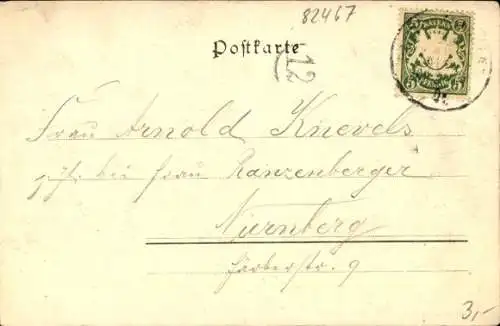 82467
Postkarte
BAYERN
5 PFENNIG 5
12
Frau Arnold Knevels
bei Frau Ranzenberger
Nürnberg
Färberstr. 9
3,-